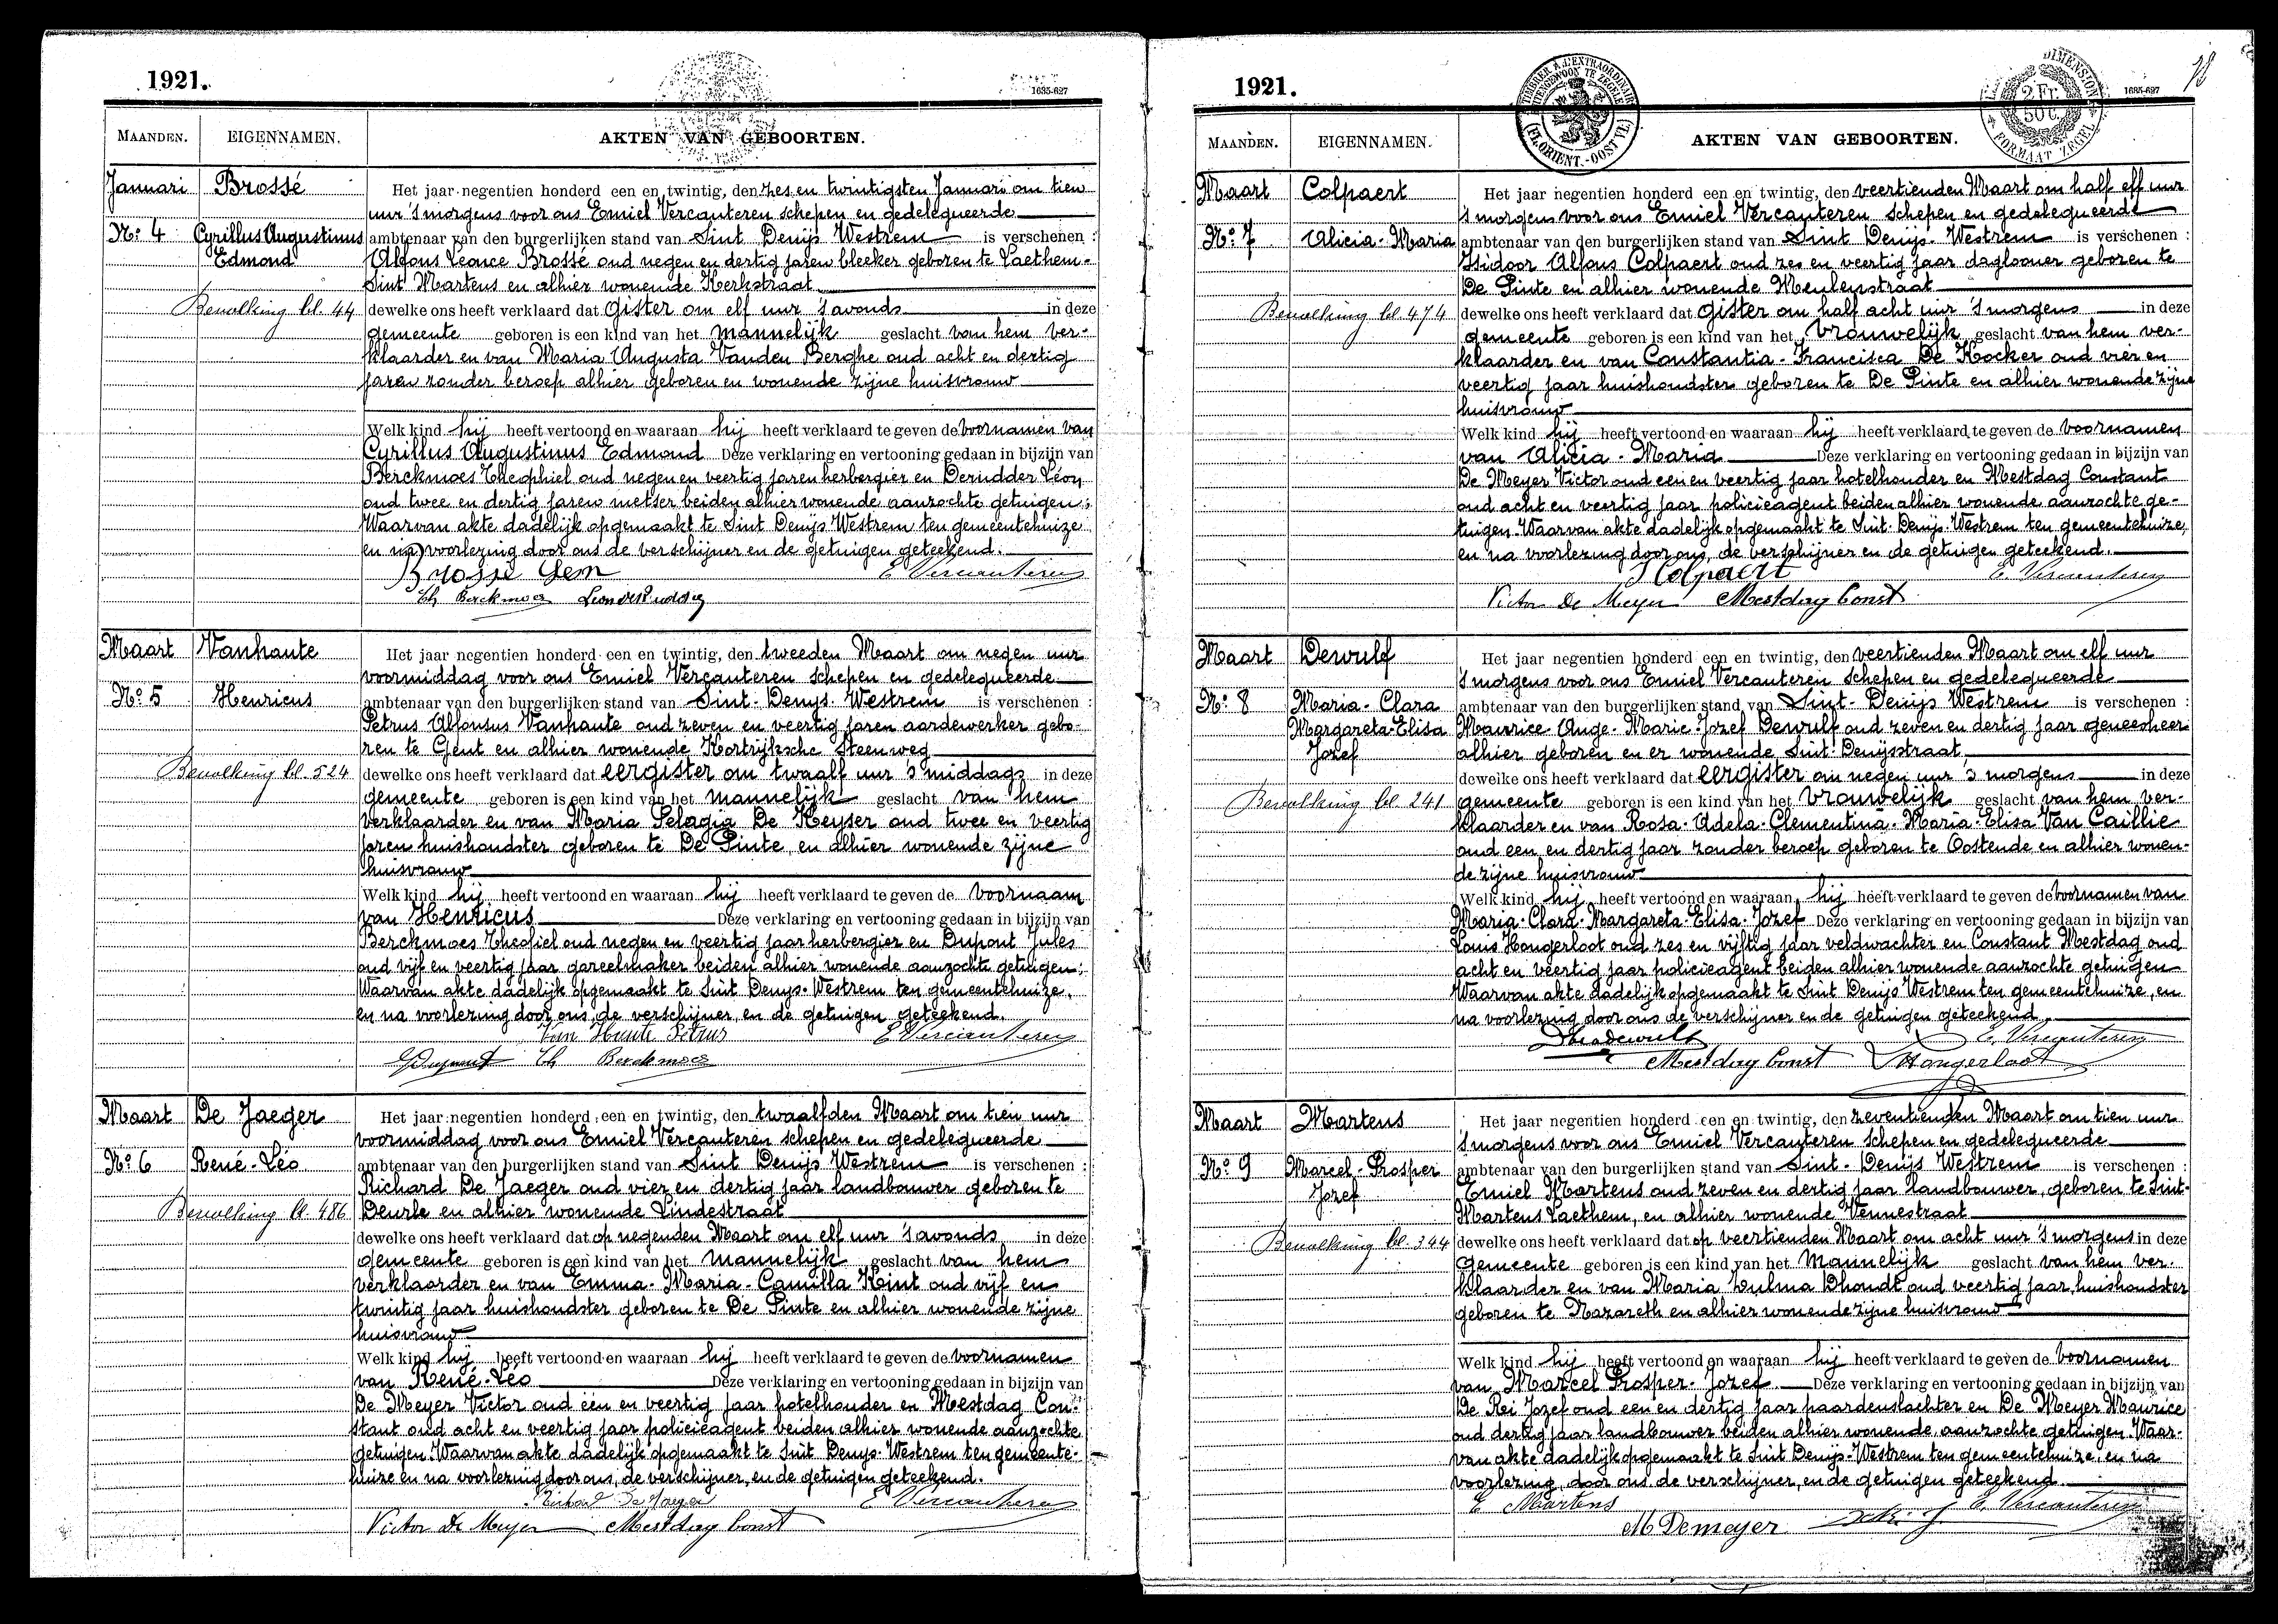 1921.
1635-627
MAANDEN. EIGENNAMEN. AKTEN VAN GEBOORTEN.
Januari Brossé Het jaar negentien honderd een en twintig, den zes en twintigsten Januari om tien
uur 's morgens voor ons Emiel Vercauteren schepen en gedelegueerde
No. 4 Cyrillus Augustinus ambtenaar van den burgerlijken stand van Sint Denijs Westrem is verschenen :
Edmond Alfons Leonce Brossé oud negen en dertig jaren bleeker geboren te Laethem-
Sint Martens en alhier wonende Kerkstraat
Bevolking bl. 44 dewelke ons heeft verklaard dat gister om elf uur 's avonds in deze
gemeente geboren is een kind van het mannelijk geslacht van hem ver-
klaarder en van Maria Augusta Vanden Berghe oud acht en dertig
jaren zonder beroep alhier geboren en wonende zijne huisvrouw
Welk kind hij heeft vertoond en waaraan hij heeft verklaard te geven de voornamen van
Cyrillus Augustinus Edmond Deze verklaring en vertooning gedaan in bijzijn van
Berckmoes Theophiel oud negen en veertig jaren herbergier en Deridder Léon
oud twee en dertig jaren metser beiden alhier wonende aanzochte getuigen;
Waarvan akte dadelijk opgemaakt te Sint Denijs Westrem ten gemeentehuize
en na voorlezing door ons de verschijner en de getuigen geteekend.
Brossé E Vercauteren
Th Berckmoes
Maart Vanhaute Het jaar negentien honderd een en twintig, den tweeden Maart om negen uur
voormiddag voor ons Emiel Vercauteren schepen en gedelegueerde
No. 5 Henricus ambtenaar van den burgerlijken stand van Sint-Denys-Westrem is verschenen :
Petrus Alfonsus Vanhaute oud zeven en veertig jaren aardewerker gebo-
ren te Gent en alhier wonende Kortrijksche Steenweg
Bevolking bl. 524 dewelke ons heeft verklaard dat eergister om twaalf uur 's middags in deze
gemeente geboren is een kind van het mannelijk geslacht van hem
verklaarder en van Maria Pelagia De Keyser oud twee en veertig
jaren huishoudster geboren te De Pinte, en alhier wonende zijne
huisvrouw
Welk kind hij heeft vertoond en waaraan hij heeft verklaard te geven de voornaam
van Henricus Deze verklaring en vertooning gedaan in bijzijn van
Berckmoes Theofiel oud negen en veertig jaar herbergier en Dupont Jules
oud vijf en veertig jaar gareelmaker beiden alhier wonende aanzochte getuigen;
Waarvan akte dadelijk opgemaakt te Sint Denys-Westrem ten gemeentehuize,
en na voorlezing door ons, de verschijner, en de getuigen geteekend.
Van Haute Petrus E Vercauteren
Dupont Th Berckmoes
Maart De Jaeger Het jaar negentien honderd een en twintig, den twaalfden Maart om tien uur
voormiddag voor ons Emiel Vercauteren schepen en gedelegueerde
No. 6 René-Léo ambtenaar van den burgerlijken stand van Sint Denijs Westrem is verschenen :
Richard De Jaeger oud vier en dertig jaar landbouwer geboren te
Bevolking bl. 486 Deurle en alhier wonende Lindestraat
dewelke ons heeft verklaard dat op negenden Maart om elf uur 's avonds in deze
gemeente geboren is een kind van het mannelijk geslacht van hem
verklaarder en van Emma-Maria-Camilla Kint oud vijf en
twintig jaar huishoudster geboren te De Pinte en alhier wonende zijne
huisvrouw
Welk kind hij heeft vertoond en waaraan hij heeft verklaard te geven de voornamen
van René-Léo Deze verklaring en vertooning gedaan in bijzijn van
De Meyer Victor oud een en veertig jaar hotelhouder en Mestdag Con-
stant oud acht en veertig jaar policieagent beiden alhier wonende aanzochte
getuigen. Waarvan akte dadelijk opgemaakt te Sint Denys-Westrem ten gemeente-
huize en na voorlezing door ons, de verschijner, en de getuigen geteekend.
Richard De Jaeger E Vercauteren
Victor De Meyer Mestdag Const
1921.
2 Fr. 50 C.
FORMAAT ZEGEL
(FL. ORIENT.-OOST VL.)
1635-627
MAANDEN. EIGENNAMEN. AKTEN VAN GEBOORTEN.
Maart Colpaert Het jaar negentien honderd een en twintig, den veertienden Maart om half elf uur
's morgens voor ons Emiel Vercauteren schepen en gedelegueerde
No. 7 Alicia-Maria ambtenaar van den burgerlijken stand van Sint Denijs-Westrem is verschenen :
Isidoor Alfons Colpaert oud zes en veertig jaar daglooner geboren te
De Pinte en alhier wonende Meulenstraat
Bevolking bl. 474 dewelke ons heeft verklaard dat gister om half acht uur 's morgens in deze
gemeente geboren is een kind van het vrouwelijk geslacht van hem ver-
klaarder en van Constantia-Francisca De Kocker oud vier en
veertig jaar huishoudster geboren te De Pinte en alhier wonende zijne
huisvrouw
Welk kind hij heeft vertoond en waaraan hij heeft verklaard te geven de voornamen
van Alicia-Maria Deze verklaring en vertooning gedaan in bijzijn van
De Meyer Victor oud een en veertig jaar hotelhouder en Mestdag Constant
oud acht en veertig jaar policieagent beiden alhier wonende aanzochte ge-
tuigen. Waarvan akte dadelijk opgemaakt te Sint Denys-Westrem ten gemeentehuize,
en na voorlezing door ons, de verschijner en de getuigen geteekend.
I Colpaert E. Vercauteren
Victor De Meyer Mestdag Const
Maart Dewulf Het jaar negentien honderd een en twintig, den veertienden Maart om elf uur
's morgens voor ons Emiel Vercauteren schepen en gedelegueerde
No. 8 Maria-Clara ambtenaar van den burgerlijken stand van Sint-Denijs Westrem is verschenen :
Margareta-Elisa Maurice Ange-Marie-Jozef Dewulf oud zeven en dertig jaar geneesheer
Jozef alhier geboren en er wonende Sint-Denijsstraat,
dewelke ons heeft verklaard dat eergister om negen uur 's morgens in deze
Bevolking bl. 241 gemeente geboren is een kind van het vrouwelijk geslacht van hem ver-
klaarder en van Rosa-Adela-Clementina-Maria-Elisa Van Caillie
oud een en dertig jaar zonder beroep geboren te Oostende en alhier wonen-
de zijne huisvrouw
Welk kind hij heeft vertoond en waaraan hij heeft verklaard te geven de voornamen van
Maria-Clara-Margareta-Elisa-Jozef Deze verklaring en vertooning gedaan in bijzijn van
Louis Hongerloot oud zes en vijftig jaar veldwachter en Constant Mestdag oud
acht en veertig jaar policieagent beiden alhier wonende aanzochte getuigen
Waarvan akte dadelijk opgemaakt te Sint Denijs Westrem ten gemeentehuize, en
na voorlezing door ons de verschijner en de getuigen geteekend.
E. Vercauteren
Mestdag Const L Hongerloot
Maart Martens Het jaar negentien honderd een en twintig, den zeventienden Maart om tien uur
's morgens voor ons Emiel Vercauteren schepen en gedelegueerde
No. 9 Marcel-Prosper ambtenaar van den burgerlijken stand van Sint-Denijs Westrem is verschenen :
Jozef Emiel Martens oud zeven en dertig jaar landbouwer, geboren te Sint-
Martens Laethem, en alhier wonende Vennestraat
Bevolking bl. 344 dewelke ons heeft verklaard dat op veertienden Maart om acht uur 's morgens in deze
gemeente geboren is een kind van het mannelijk geslacht van hem ver-
klaarder en van Maria Zulma Dhondt oud veertig jaar, huishoudster
geboren te Nazareth en alhier wonende zijne huisvrouw
Welk kind hij heeft vertoond en waaraan hij heeft verklaard te geven de voornamen
van Marcel Prosper-Jozef. Deze verklaring en vertooning gedaan in bijzijn van
De Kei Jozef oud een en dertig jaar paardenslachter en De Meyer Maurice
oud dertig jaar landbouwer beiden alhier wonende aanzochte getuigen. Waar-
van akte dadelijk opgemaakt te Sint Denijs-Westrem ten gemeentehuize, en na
voorlezing, door ons de verschijner, en de getuigen geteekend.
E Martens E. Vercauteren
M Demeyer